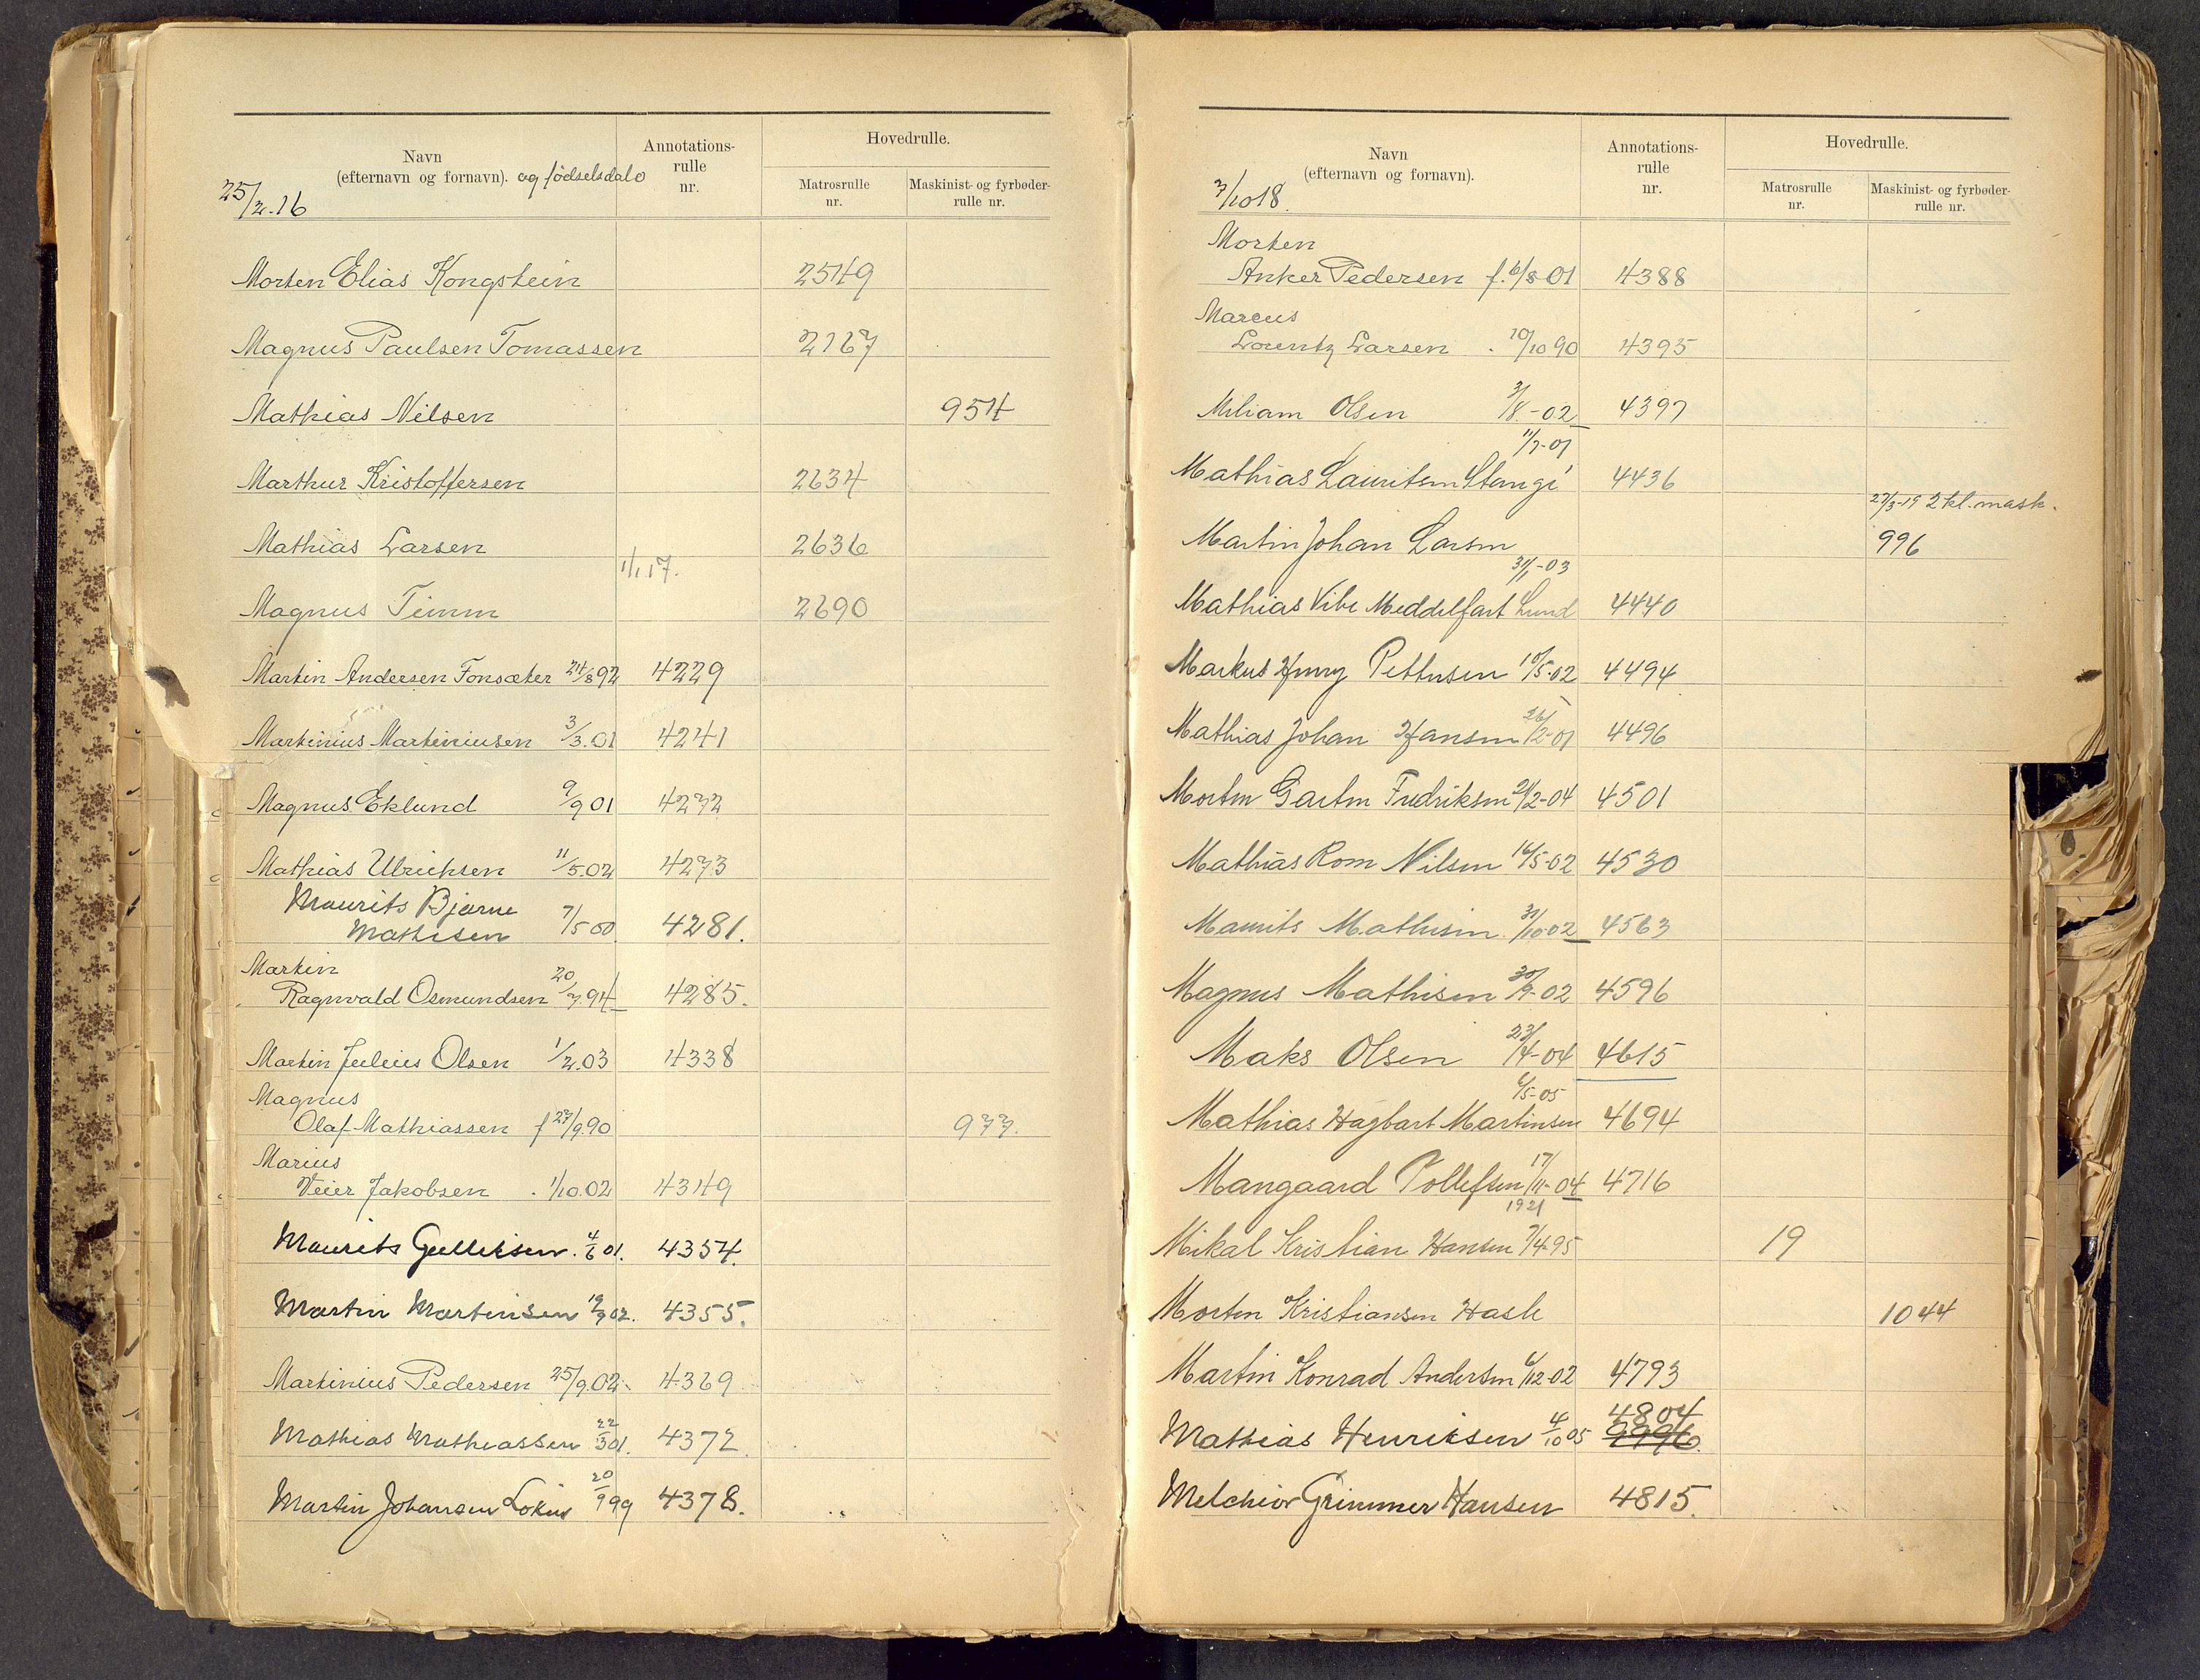 Navn
(efternavn og fornavn). og fødselsdato
Annotations-
rulle
nr.
Hovedrulle.
Matrosrulle
nr.
Maskinist- og fyrbøder-
rulle nr.
25/2.16
Morten Elias Kongstein 2549
Magnus Paulsen Tomassen 2167
Mathias Nilsen 954
Marthur Kristoffersen 2634
Mathias Larsen 2636
1/1 17.
Magnus Timm 2690
Martin Andersen Fonsæter 24/8 92 4229
Martinius Martiniusen 3/3.01 4241
Magnus Eklund 9/9 01 4272
Mathias Ulrichsen 11/5.02 4273
Maurits Bjarne
Mathisen 7/5 00 4281.
Martin
Ragnvald Osmundsen 20/7 94 4285.
Martin Julius Olsen 1/2.03 4338
Magnus
Olaf Mathiassen f 27/9.90 977.
Marius
Veier Jakobsen 1/10.02 4349
Maurits Gulliksen 4/6 01. 4354.
Martin Martinsen 19/9 02. 4355.
Martinius Pedersen 25/9.02 4369
Mathias Mathiassen 22/3 01. 4372
Martin Johansen 20/9 99 4378.
Navn
(efternavn og fornavn).
Annotations-
rulle
nr.
Hovedrulle.
Matrosrulle
nr.
Maskinist- og fyrbøder-
rulle nr.
7/10 18.
Morten
Anker Pedersen f. 6/8-01 4388
Marcus
Lorentz Larsen 10/10 90 4395
Miliam Olsen 3/8-02 4397
11/7-01
Mathias Lauritsen Stangi 4436
27/3-19 2 kl. mask.
Martin Johan Larsen 996
31/1-03
Mathias Vibe Meddelfart Lund 4440
Markus Henry Pettersen 10/5-02 4494
Mathias Johan Hansen 26/2-01 4496
Morten Garten Fredriksen 21/2-04 4501
Mathias Rom Nilsen 16/5-02 4530
Maurits Mathisen 31/10-02 4563
Magnus Mathisen 30/9-02 4596
Maks Olsen 23/4-04 4615
6/5-05
Mathias Hagbart Martinsen 4694
Mangaard Tollefsen 17/11-04 4716
1921
Mikal Kristian Hansen 7/4-95 19
Morten Kristiansen Hasle 1044
Martin Konrad Andersen 6/12-02 4793
4804
Mathias Henriksen 4/10 05 9996.
Melchior Grimmer Hansen 4815.